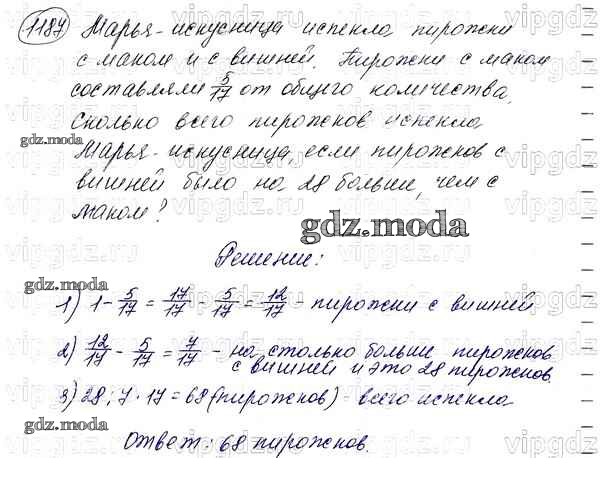 1187 Марья-искусница испекла пирожки
с маком и с вишней. Пирожки с маком
составляли 5/17 от общего количества.
Сколько всего пирожков испекла
gdz.moda
Марья-искусница, если пирожков с
вишней было на 28 больше, чем с
маком?
gdz.moda
Решение:
gdz.moda
1) 1 - 5/17 = 17/17 - 5/17 = 12/17 - пирожки с вишней
2) 12/17 - 5/17 = 7/17 - на столько больше пирожков
с вишней и это 28 пирожков
3) 28 : 7 · 17 = 68 (пирожков) - всего испекла
gdz.moda
Ответ: 68 пирожков.
vipgdz.ru